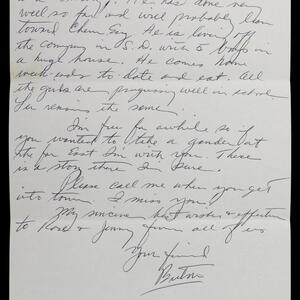 well so far and will probably lean
toward Chem. Eng. He is living off
the Company in S.D. with 5 boys in
a huge house. He comes home
week-ends to date and eat. All
the girls are progressing well in school
remains the same.
I'm free for awhile so if
you wanted to take a gander at
the far East I'm with you. There
is a story there I'm sure.
Please call me when you get
into town. I miss you!
My sincere best wishes & affection
to Rose & Jenny from all of us
Your friend